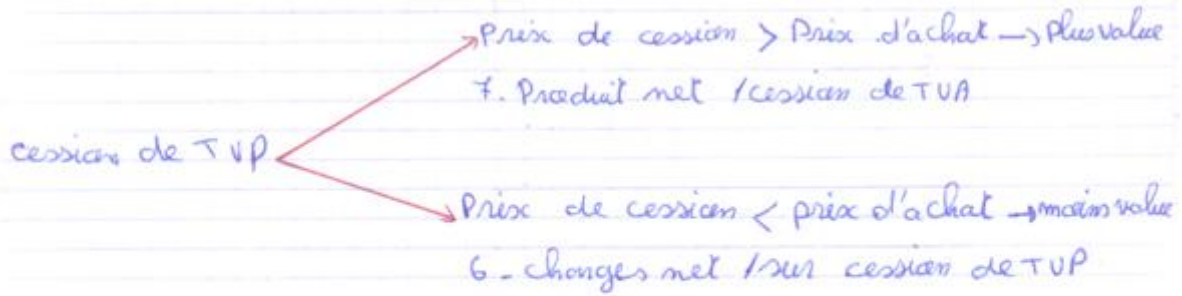 Prix de cession > Prix d'achat → Plus value
7. Produit net / cession de TVA
cession de TVP
Prix de cession < prix d'achat → moins value
6 - charges net / sur cession de TVP